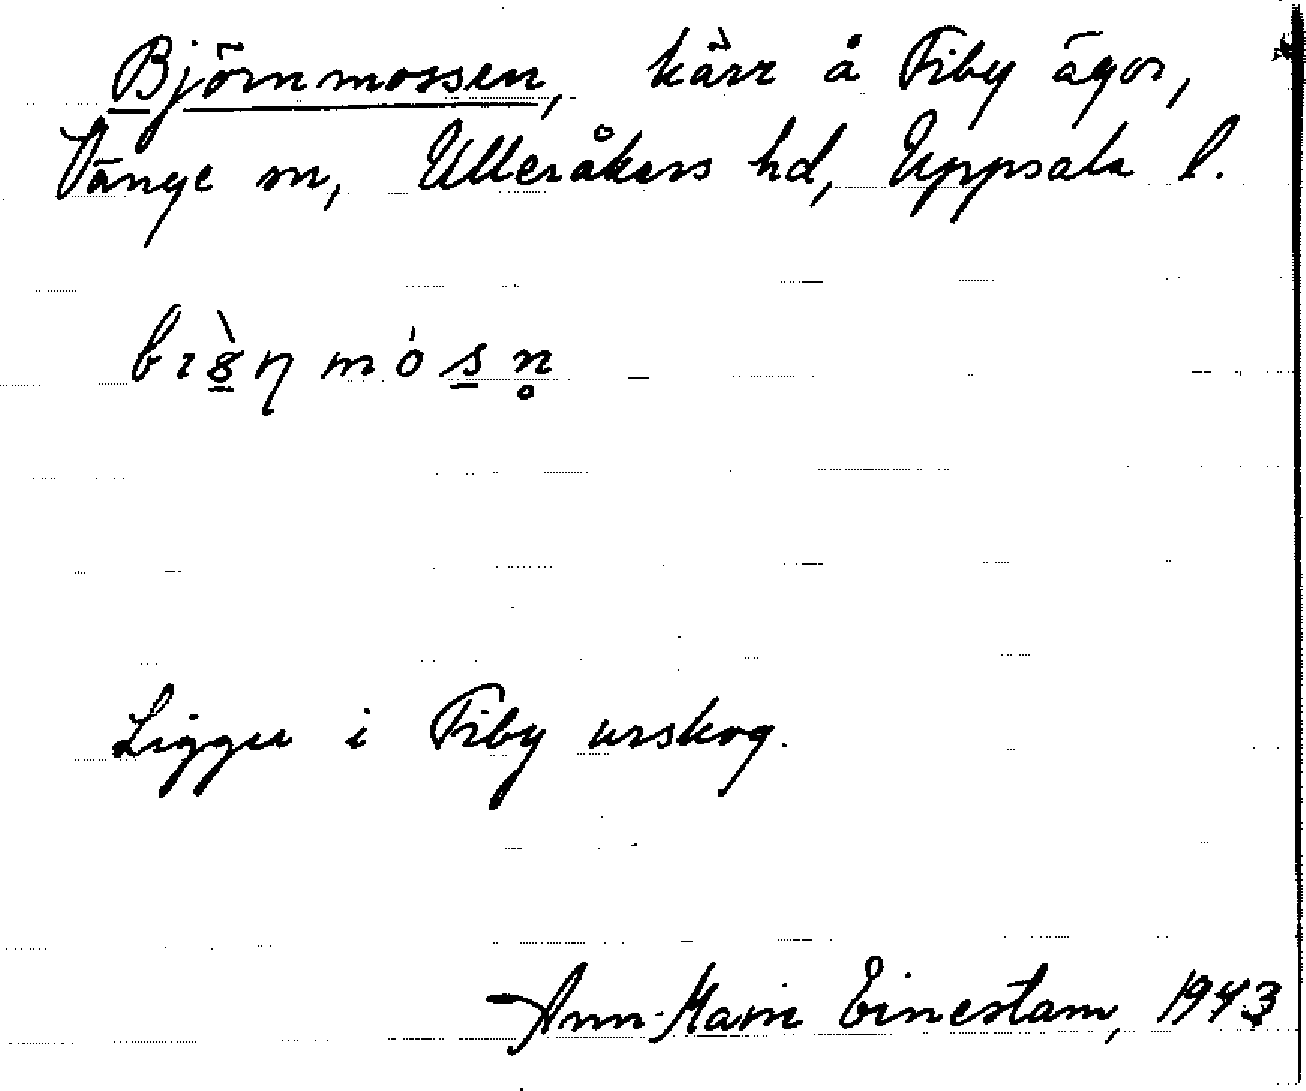 Björnmossen, kärr å Fiby ägor,
Vänge sn, Ulleråkers hd, Uppsala l.
Ligger i Fiby urskog.
Ann-Marie Einestam, 1943